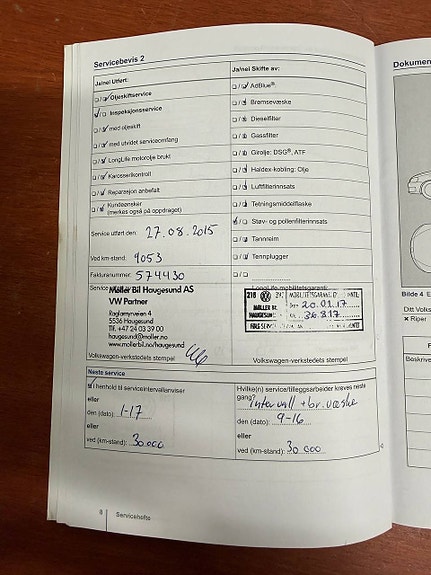 Servicebevis 2
Ja/nei Utført:
Ja/nei Skifte av:
Oljeskiftservice
AdBlue®
Inspeksjonsservice
Bremsevæske
med oljeskift
Dieselfilter
med utvidet serviceomfang
Gassfilter
LongLife motorolje brukt
Girolje: DSG®, ATF
Karosserikontroll
Haldex-kobling: Olje
Reparasjon anbefalt
Luftfilterinnsats
Kundeønsker
(merkes også på oppdraget)
Tetningsmiddelflaske
Støv- og pollenfilterinnsats
Service utført den: 27.08.2015
Tannreim
Ved km-stand: 9053
Tennplugger
Fakturanummer: 574430
Møller Bil Haugesund AS
VW Partner
Raglamyrveien 4
5536 Haugesund
Tlf. +47 24 03 39 00
haugesund@moller.no
www.mollerbil.no/haugesund
LongLife mobilitetsgaranti
218
MOBILITETSGARANTI
20.01.17
MØLLER
HAUGESUND
Volkswagen-verkstedets stempel
Volkswagen-verkstedets stempel
Neste service
I henhold til serviceintervallanviser
eller
den (dato): 1-17
eller
ved (km-stand): 30 000
Hvilke(n) service/tilleggsarbeider kreves neste
gang? Intervall + br.væske
den (dato): 9-16
eller
ved (km-stand): 30 000
8
Servicehefte
Dokumen
Bilde 4
Ditt Vo
Riper
Beskrive